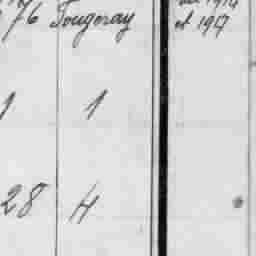 76 Fougeray
et 1917
1 1
28 H